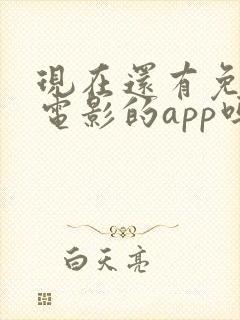 現在還有免
電影的app嗎
白天亮